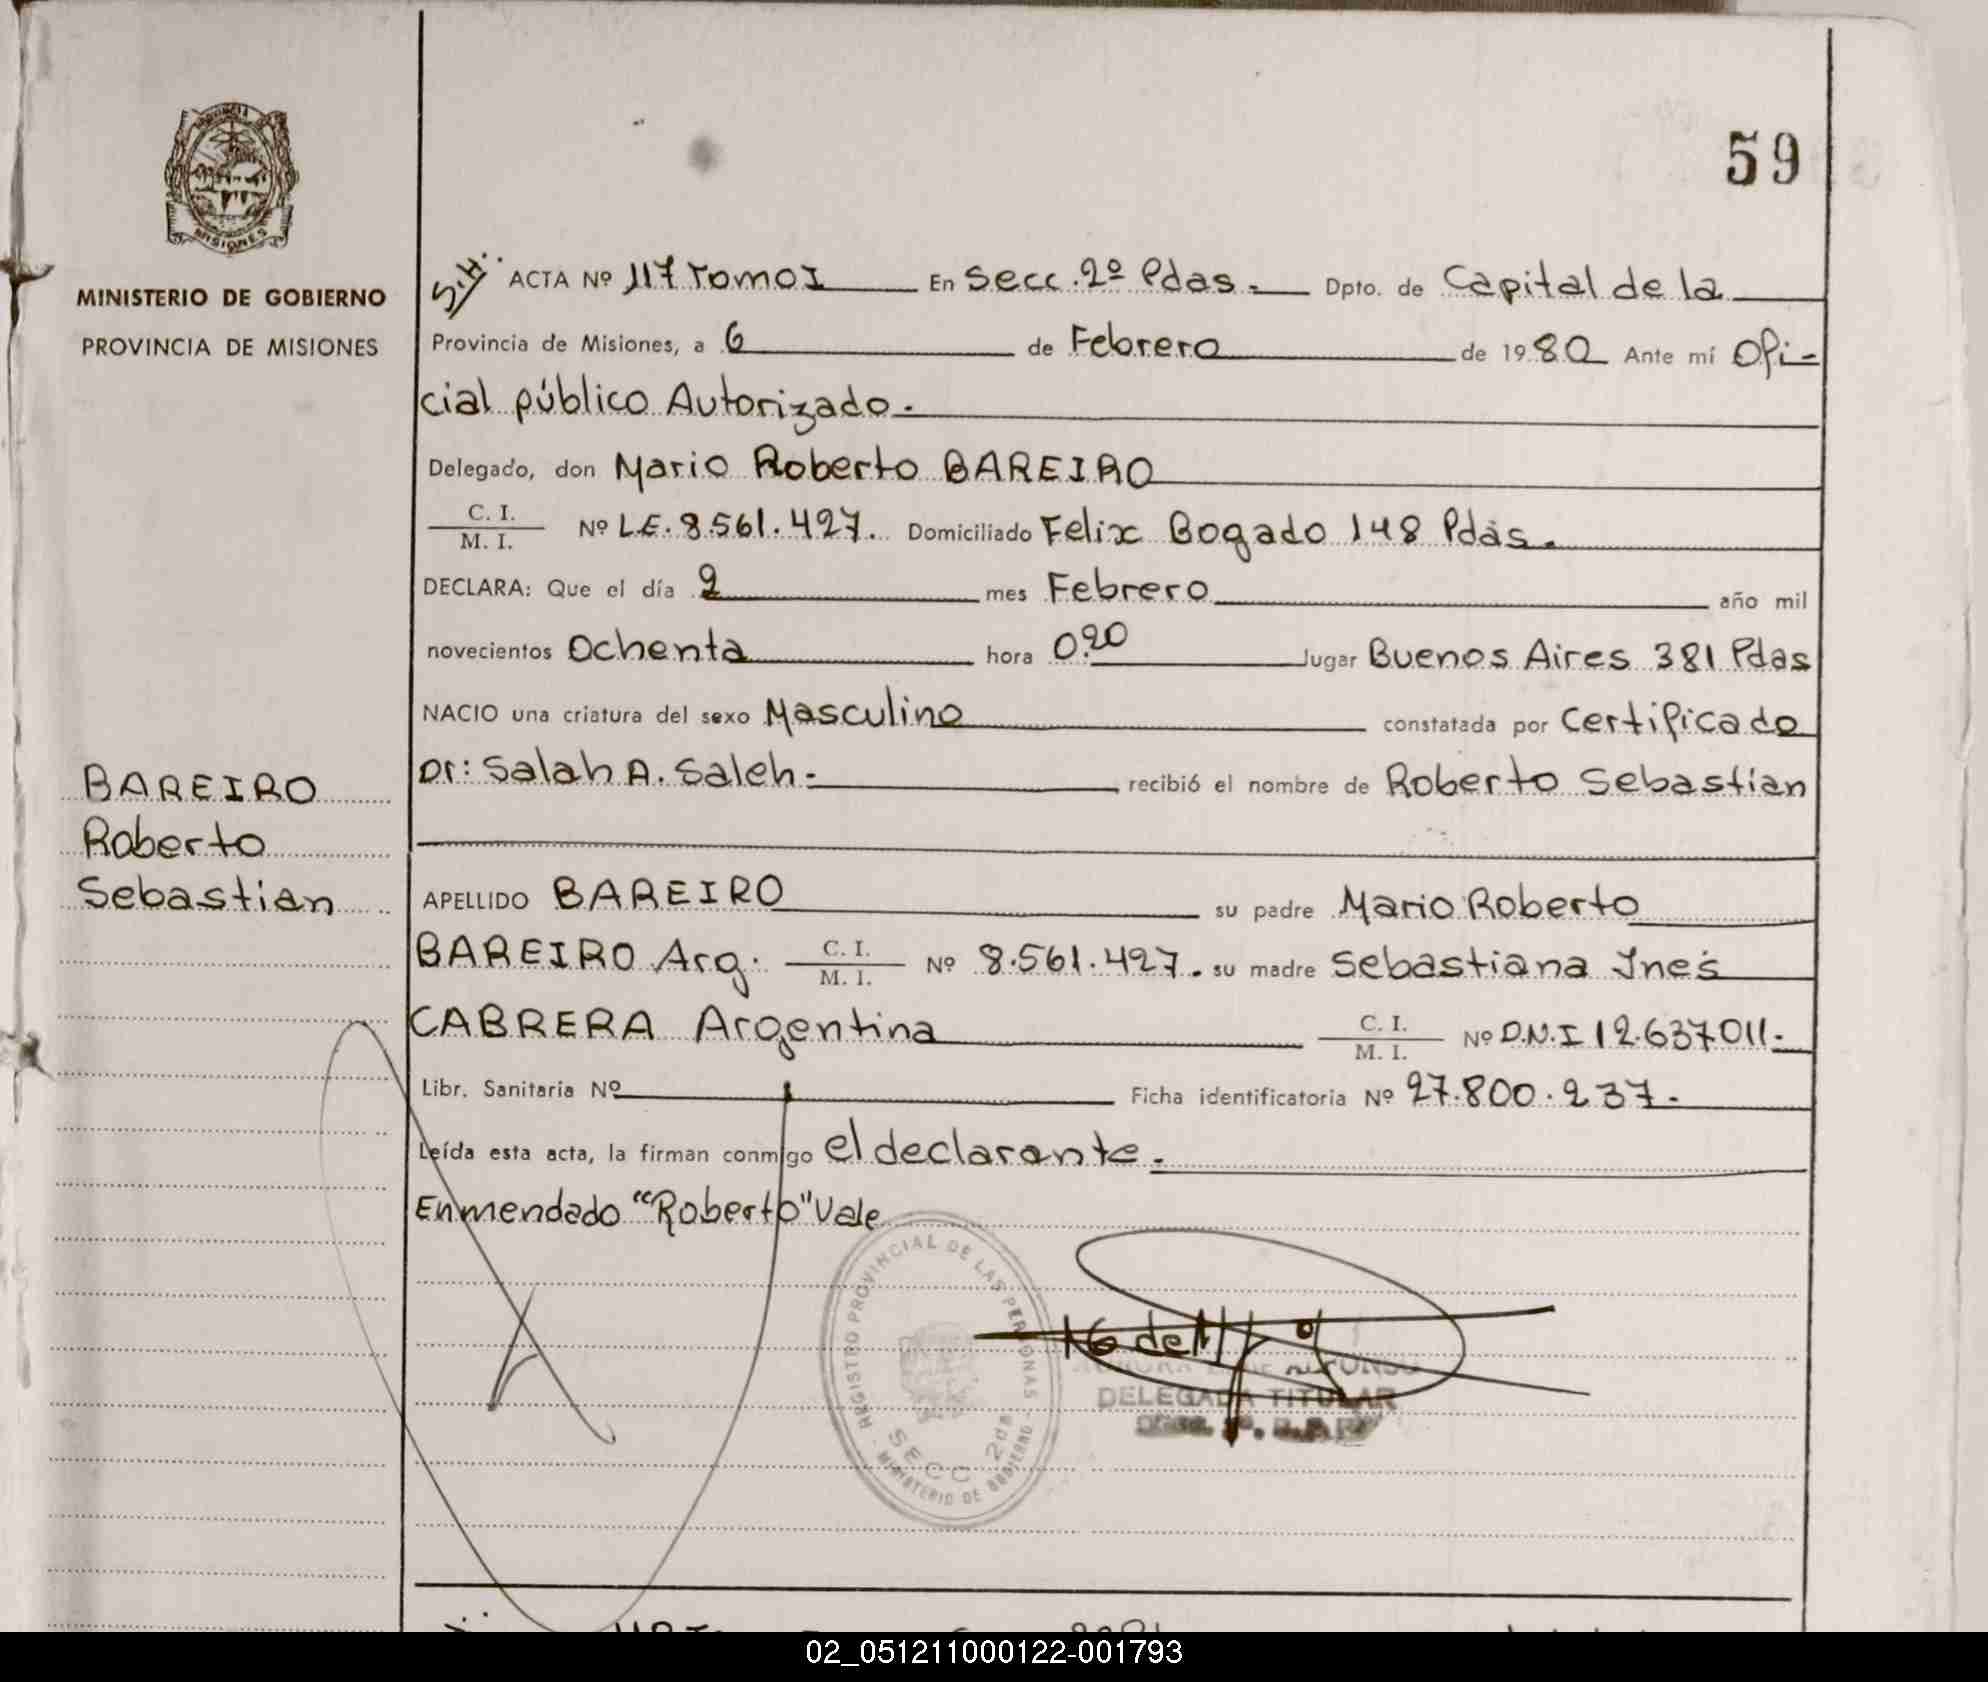 59
MISIONES
MINISTERIO DE GOBIERNO
PROVINCIA DE MISIONES
BAREIRO
Roberto
Sebastian
S.H. ACTA Nº 117 Tomo I En Secc. 2º Pdas. Dpto. de Capital de la
Provincia de Misiones, a 6 de Febrero de 1980 Ante mí Ofi-
cial público Autorizado.
Delegado, don Mario Roberto BAREIRO
C. I.
M. I. Nº L.E. 8.561.427. Domiciliado Felix Bogado 148 Pdas.
DECLARA: Que el día 2 mes Febrero año mil
novecientos Ochenta hora 0.20 lugar Buenos Aires 381 Pdas
NACIO una criatura del sexo Masculino constatada por Certificado
Dr: Salah A. Saleh.- recibió el nombre de Roberto Sebastian
APELLIDO BAREIRO su padre Mario Roberto
BAREIRO Arg. C. I. M. I. Nº 8.561.427. su madre Sebastiana Inés
CABRERA Argentina C. I. M. I. Nº D.N.I 12.637011.-
Libr. Sanitaria Nº Ficha identificatoria Nº 27.800.237.-
Leída esta acta, la firman conmigo el declarante.
Enmendado "Roberto" Vale
REGISTRO PROVINCIAL DE LAS PERSONAS
MINISTERIO DE GOBIERNO
SECC 2da
DELEGADA TITULAR
02_051211000122-001793